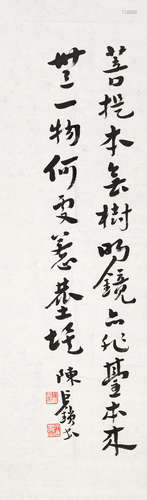 菩提本無樹明鏡亦非臺本來
無一物何處惹塵埃 陳巨鎖書